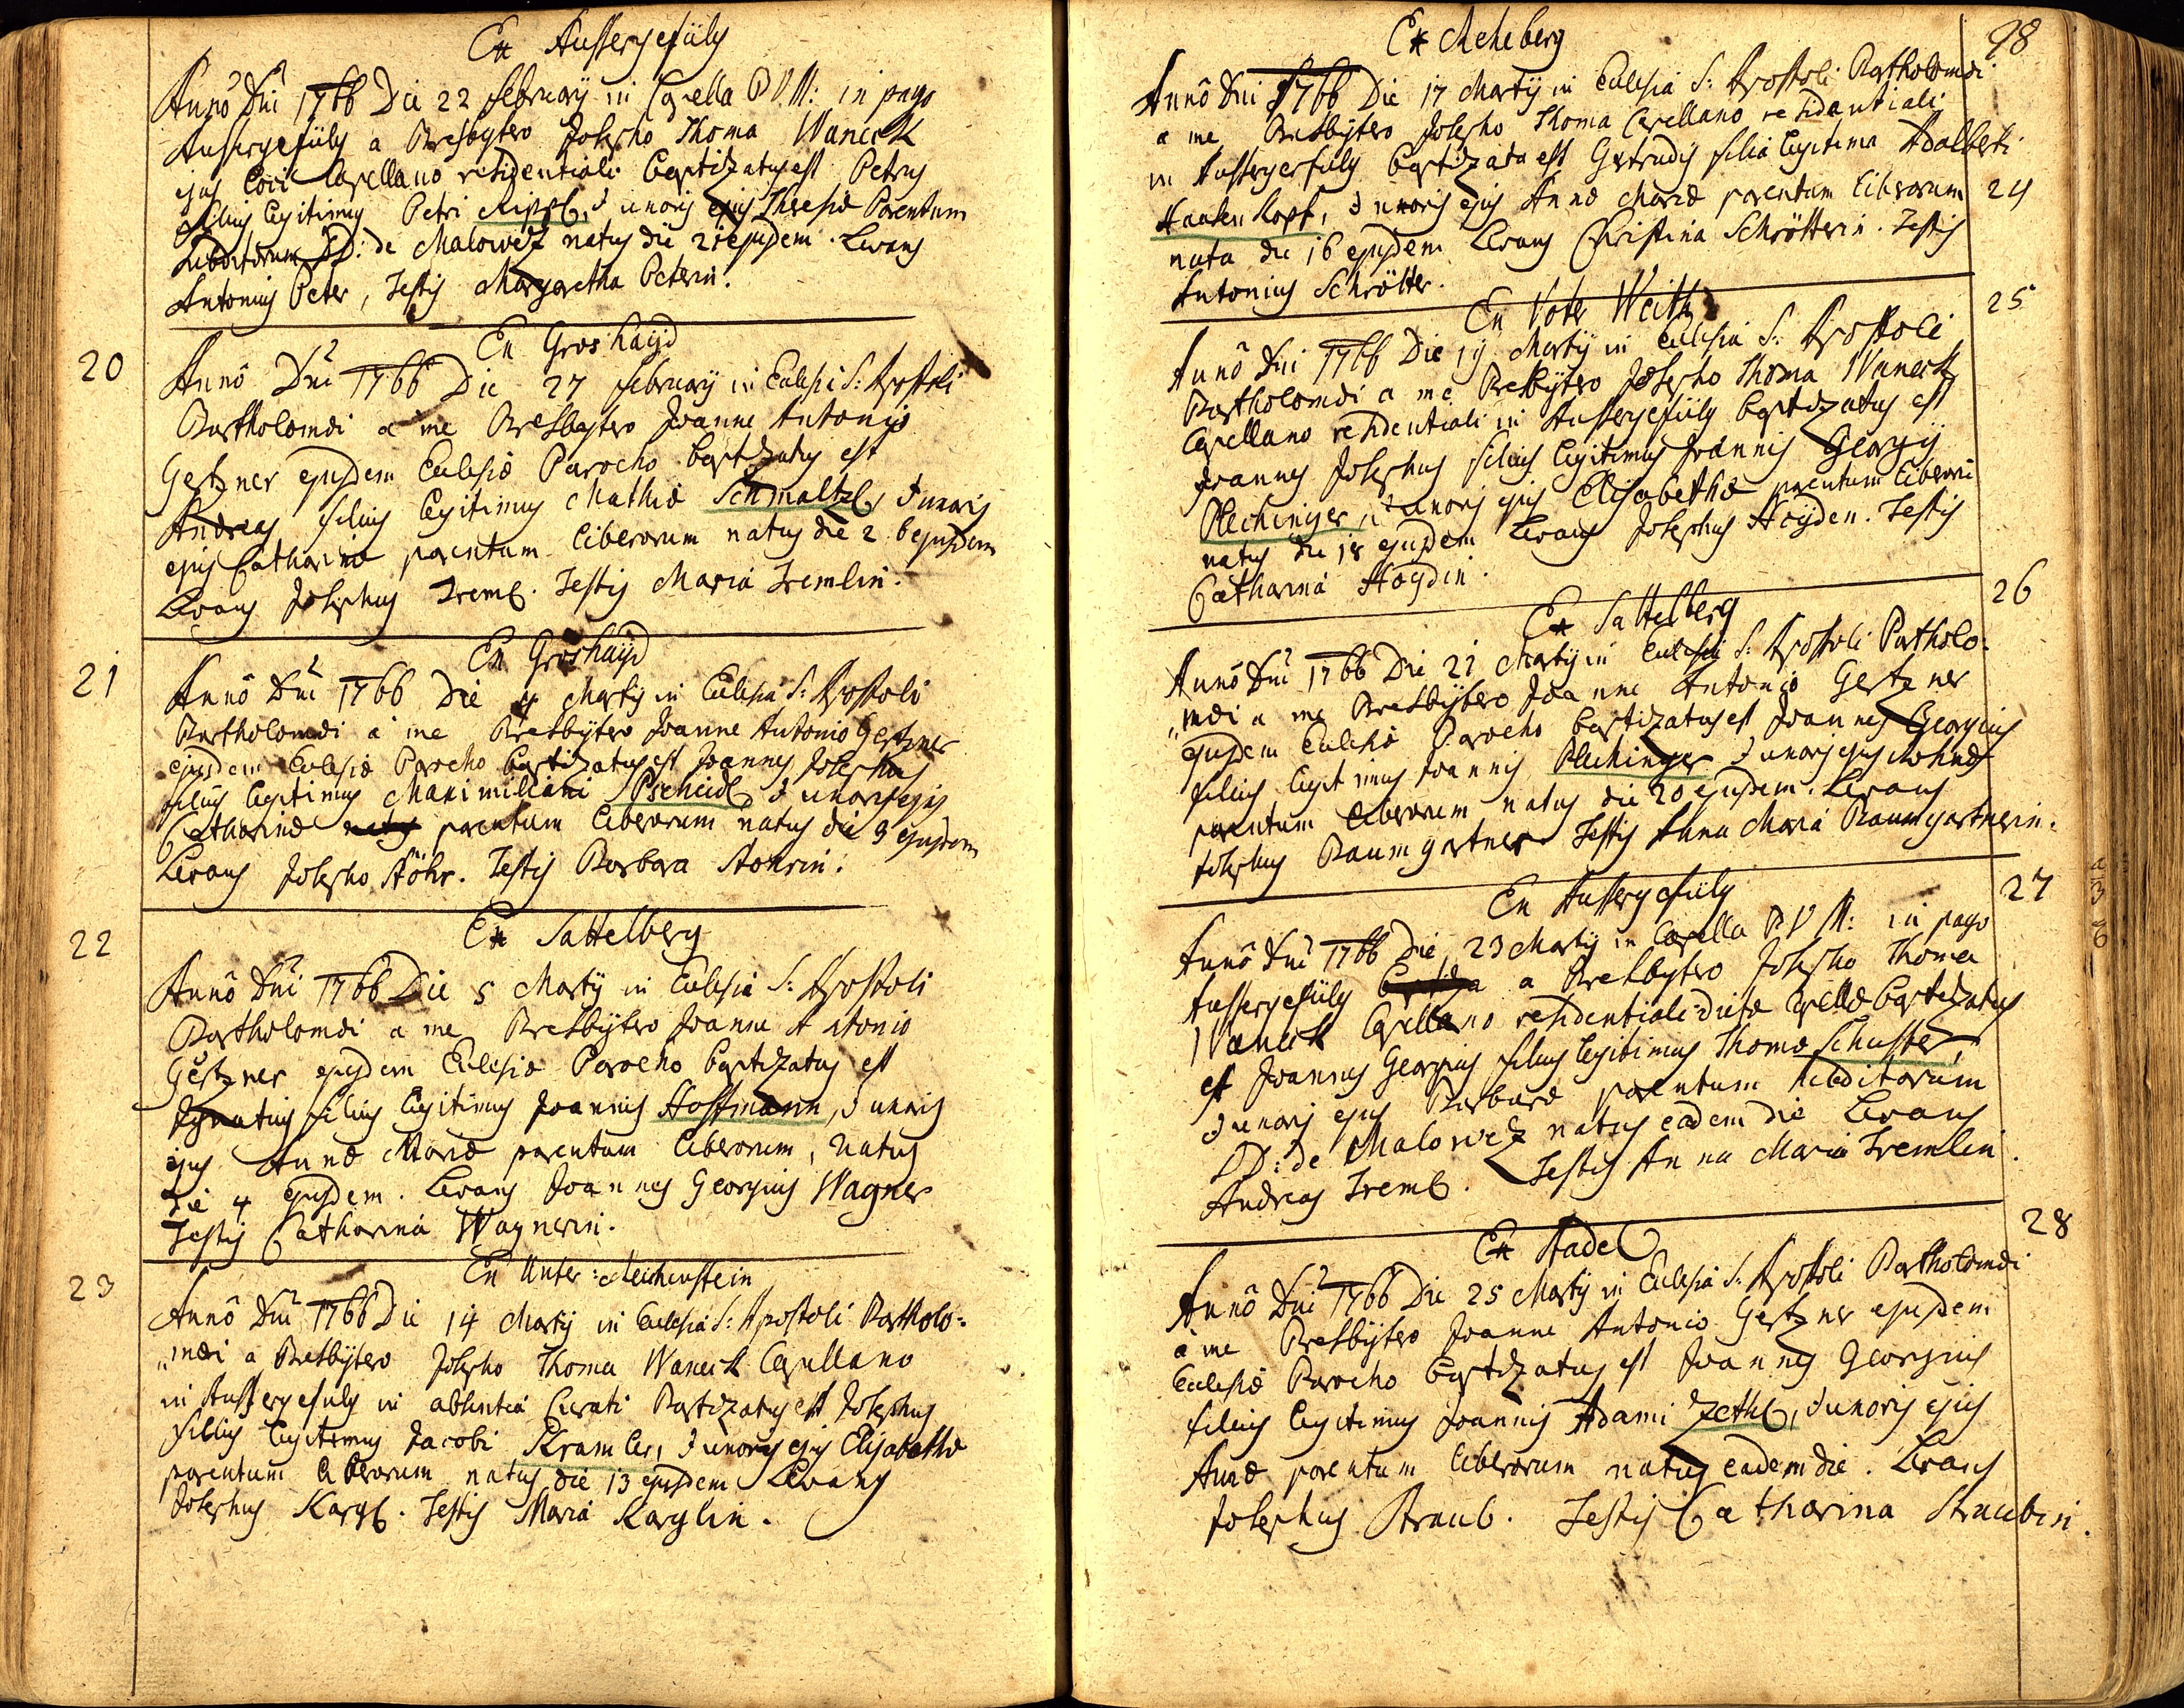 Ex Aussergefüly
Annô Dnî 1766 Die 22 februarij in Capella B V M: in pago
Aussergefüly a Presbytero Josepho Thoma Waneck
ejus loci Capellano residentiali baptizatus est Petrus
filius legitimus Petri Rippl, & uxoris ejus Theresiæ Parentum
subditorum D: de Malowetz natus die 21 ejusdem. Levans
Antonius Peter, Testis Margaretha Peterin.
Ex Groshayd
20
Annô Dnî 1766 Die 27 februarij in Eclesiâ S: Apostoli
Bartholomæi a me Presbytero Joanne Antonio
Gertzner ejusdem Eclesiæ Parocho baptizatus est
Andreas filius legitimus Mathiæ Schmaltzl, & uxoris
ejus Catharinæ parentum liberorum natus die 26 ejusdem
Levans Josephus Treml. Testis Maria Tremlin.
Ex Groshayd
21
Annô Dnî 1766 Die 4 Martij in Eclesiâ S: Apostoli
Bartholomæi a me Presbÿtero Joanne Antonio Gertzner
ejusdem Eclesiæ Parocho baptizatus est Joannes Josephus
filius legitimus Maximiliani Pscheidl & uxoris ejus
Catharinæ natus parentum liberorum natus die 3 ejusdem
Levans Josepho Stöhr. Testis Barbara Stöhrin.
Ex Sattelberg
22
Annô Dnî 1766 Die 5 Martij in Eclesiâ S: Apostoli
Bartholomæi a me Presbÿtero Joanne Antonio
Gertzner ejusdem Eclesiæ Parocho baptizatus est
Ignatius filius legitimus Joannis Hoffmann, & uxoris
ejus Annæ Mariæ parentum liberorum, natus
die 4 ejusdem. Levans Joannes Georgius Wagner
Testis Catharina Wagnerin.
Ex Unter:Reichenstein
23
Annô Dnî 1766 Die 14 Martij in Eclesiâ S: Apostoli Bartholo=
„mæi a Presbÿtero Josepho Thoma Waneck Capellano
in Aussergefuly in absentiâ Curati Baptizatus est Josephus
filius legitimus Jacobi Kramler, & uxoris ejus Elisabethæ
parentum liberorum natus die 13 ejusdem Levans
Josephus Kargl. Testis Maria Karglin.
98
Ex Reheberg
Annô Dni 1766 Die 17 Martij in Eclesiâ S: Apostoli Bartholomæi
a me Presbÿtero Josepho Thoma Capellano residentiali
in Aussergerfuly baptizata est Gertrudis filia legitima Adalberti
24
Haasen Kopf, & uxoris ejus Annæ Mariæ parentum liberorum
nata die 16 ejusdem Levans Christina Schrötterin. Testis
Antonius Schrötter.
Ex Voter Weith
25
Annô Dni 1766 Die 19 Martij in Eclesiâ S: Apostoli
Bartholomæi a me Presbÿtero Josepho Thoma Waneck
Capellano residentiali in Aussergefüly baptizatus est
Joannes Josephus filius legitimus Joannis Georgij
Plechinger, & uxoris ejus Elisabethæ parentum liberorū
natus die 18 ejusdem Levans Josephus Hoyden. Testis
Catharina Hoydin.
Ex Sattelberg
26
Annô Dnî 1766 Die 21 Martij in Eclesiâ S: Apostoli Bartholo-
„mæi a me Presbÿtero Joanne Antonio Gertzner
ejusdem Eclesiæ Parocho baptizatus est Joannes Georgius
filius legitimus Joannis Plechinger & uxoris ejus
parentum liberorum natus die 20 ejusdem. Levans
Josephus Baumgartner Testis Anna Maria Baumgartnerin.
Ex Aussergefüly
27
Annô Dnî 1766 Die 23 Martij in Capella B V M: in pago
Aussergefüly baptiza a Presbytero Josepho Thoma
Waneck Capellano residentiali dictæ Capellæ baptizatus
est Joannes Georgius filius legitimus Thomæ Schuster,
& uxoris ejus Barbaræ parentum subditorum
D: de Malowetz natus eadem die Levans
Andreas Treml. Testis Anna Maria Tremlin.
Ex Stadel
28
Annô Dnî 1766 Die 25 Martij in Eclesiâ S: Apostoli Bartholomæi
à me Presbÿtero Joanne Antonio Gertzner ejusdem
Eclesiæ Parocho baptizatus est Joannes Georgius
filius legitimus Joannis Adami Zethl, & uxoris ejus
Annæ parentum liberorum natus eadem die. Levans
Josephus Straub. Testis Catharina Straubin.